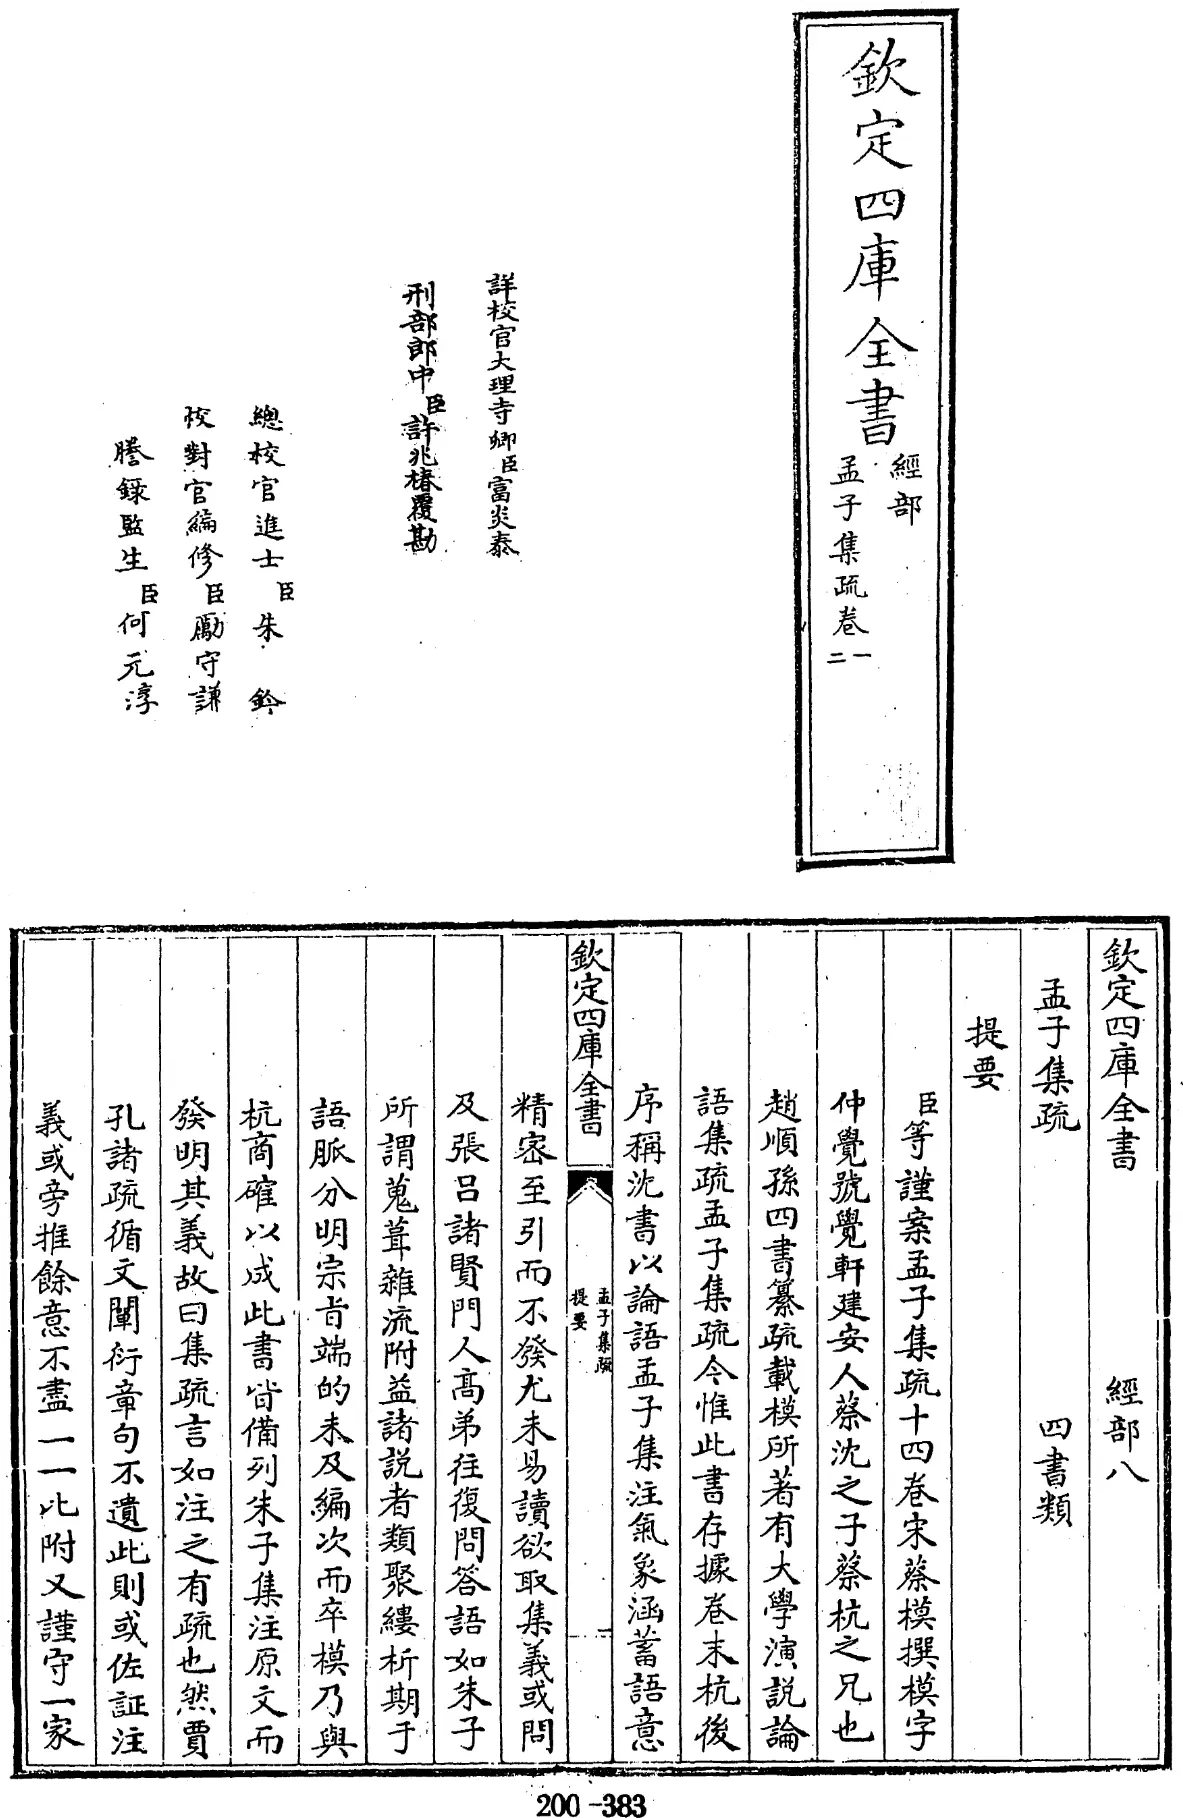 欽定四庫全書
經部
孟子集疏卷一
二
詳校官大理寺卿臣富炎泰
刑部郎中臣許兆椿覆勘
總校官進士臣朱鈐
校對官編修臣勵守謙
謄錄監生臣何元淳
欽定四庫全書 經部八
孟子集疏 四書類
提要
臣等謹案孟子集疏十四卷宋蔡模撰模字
仲覺號覺軒建安人蔡沈之子蔡杭之兄也
趙順孫四書纂疏載模所著有大學演說論
語集疏孟子集疏今惟此書存據卷末杭後
序稱沈書以論語孟子集注氣象涵蓄語意
欽定四庫全書
孟子集疏
提要
一
精密至引而不發尤未易讀欲取集義或問
及張呂諸賢門人高弟往復問答語如朱子
所謂蒐葺雜流附益諸説者類聚縷析期于
語脈分明宗旨端的未及編次而卒模乃與
杭商確以成此書皆備列朱子集注原文而
發明其義故曰集疏言如注之有疏也然賈
孔諸疏循文闡衍章句不遺此則或佐証注
義或旁推餘意不盡一一比附又謹守一家
200-383